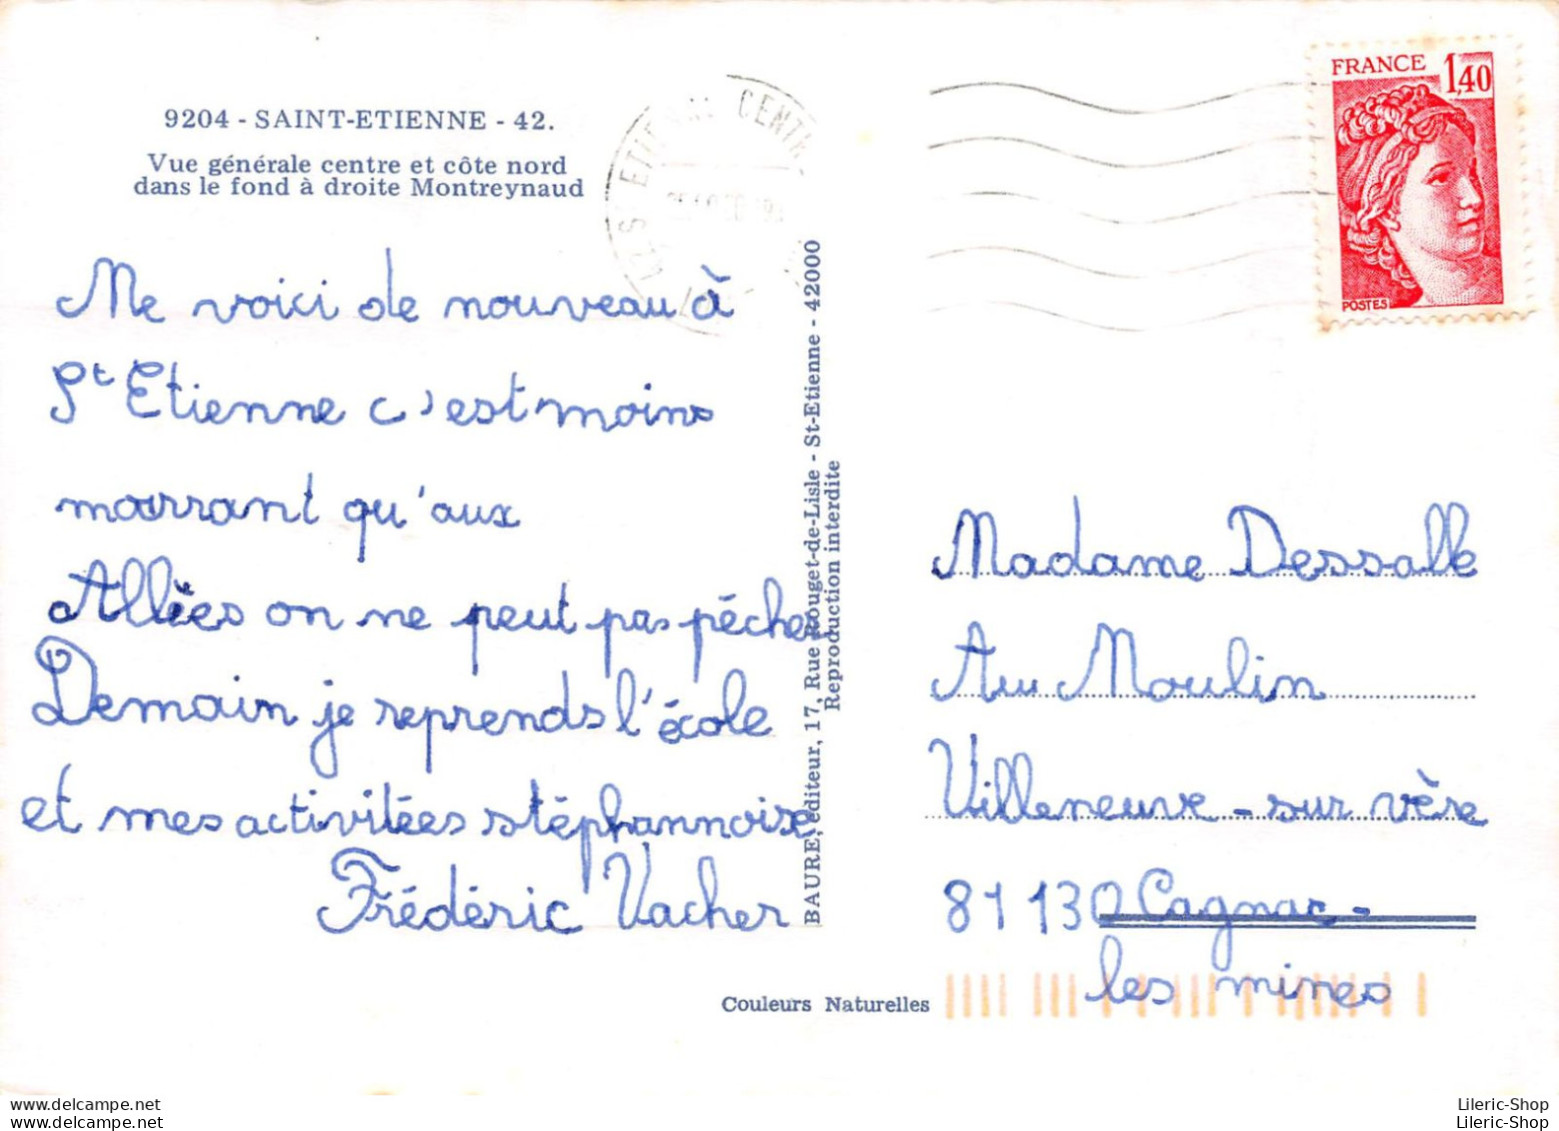 9204 - SAINT-ETIENNE - 42.
Vue générale centre et côte nord
dans le fond à droite Montreynaud
Me voici de nouveau à
St Etienne c'est moins
marrant qu'aux
Allées on ne peut pas pécher
Demain je reprends l'école
et mes activitées stéphannoise
Frédéric Vacher
BAURE, éditeur, 17, Rue Rouget-de-Lisle - St-Etienne - 42000
Reproduction interdite
Couleurs Naturelles
CENTR
FRANCE 1,40
POSTES
Madame Dessalle
Au Moulin
Villeneuve - sur vère
81130 Cagnac -
les mines
www.delcampe.net
www.delcampe.net
Lileric-Shop
Lileric-Shop